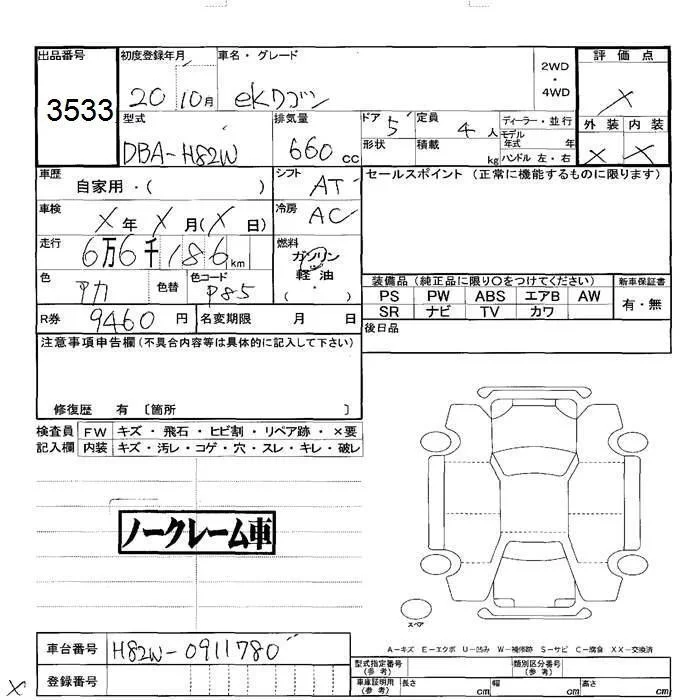 出品番号
3533
初度登録年月
20 10月
車名・グレード
eKワゴン
2WD
・
4WD
評価点
X
型式
DBA-H82W
排気量
660 cc
ドア 5
形状
定員 4人
積載 kg
ディーラー・並行
モデル年式 年
ハンドル 左・右
外装 内装
X X
車歴
自家用・( )
シフト AT
車検
X年 X月(X日)
冷房 AC
走行
6万6千186km
燃料
ガソリン
・
軽油
( ・ )
色
アカ
色替
色コード
P85
R券 9460円
名変期限 月 日
セールスポイント (正常に機能するものに限ります)
装備品 (純正品に限り〇をつけてください)
PS PW ABS エアB AW
SR ナビ TV カワ
新車保証書
有・無
後日品
注意事項申告欄(不具合内容等は具体的に記入して下さい)
修復歴 有 〔箇所 〕
検査員記入欄
FW キズ・飛石・ヒビ割・リペア跡・×要
内装 キズ・汚レ・コゲ・穴・スレ・キレ・破レ
ノークレーム車
スペア
A-キズ E-エクボ U-凹み W-補修跡 S-サビ C-腐食 XX-交換済
車台番号 H82W-0911780
登録番号
X
型式指定番号(参考)
類別区分番号(参考)
車庫証明用(参考)
長さ cm 幅 cm 高さ cm